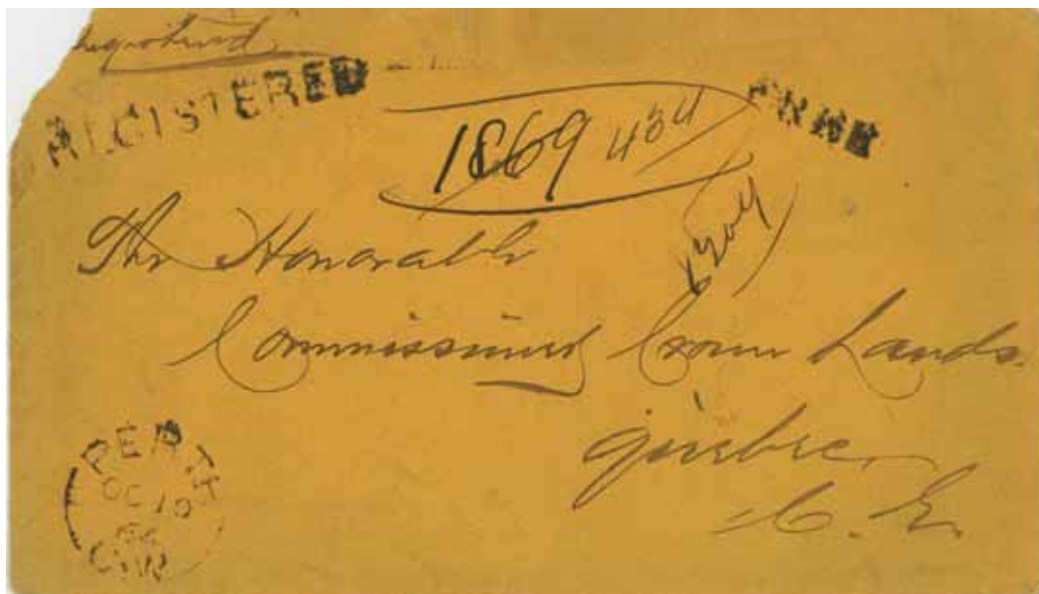 Registered
REGISTERED
1869 434
FREE
The Honorable
Commissioner Crown Lands
Quebec
C. E.
PERTH
OC 10
C.W